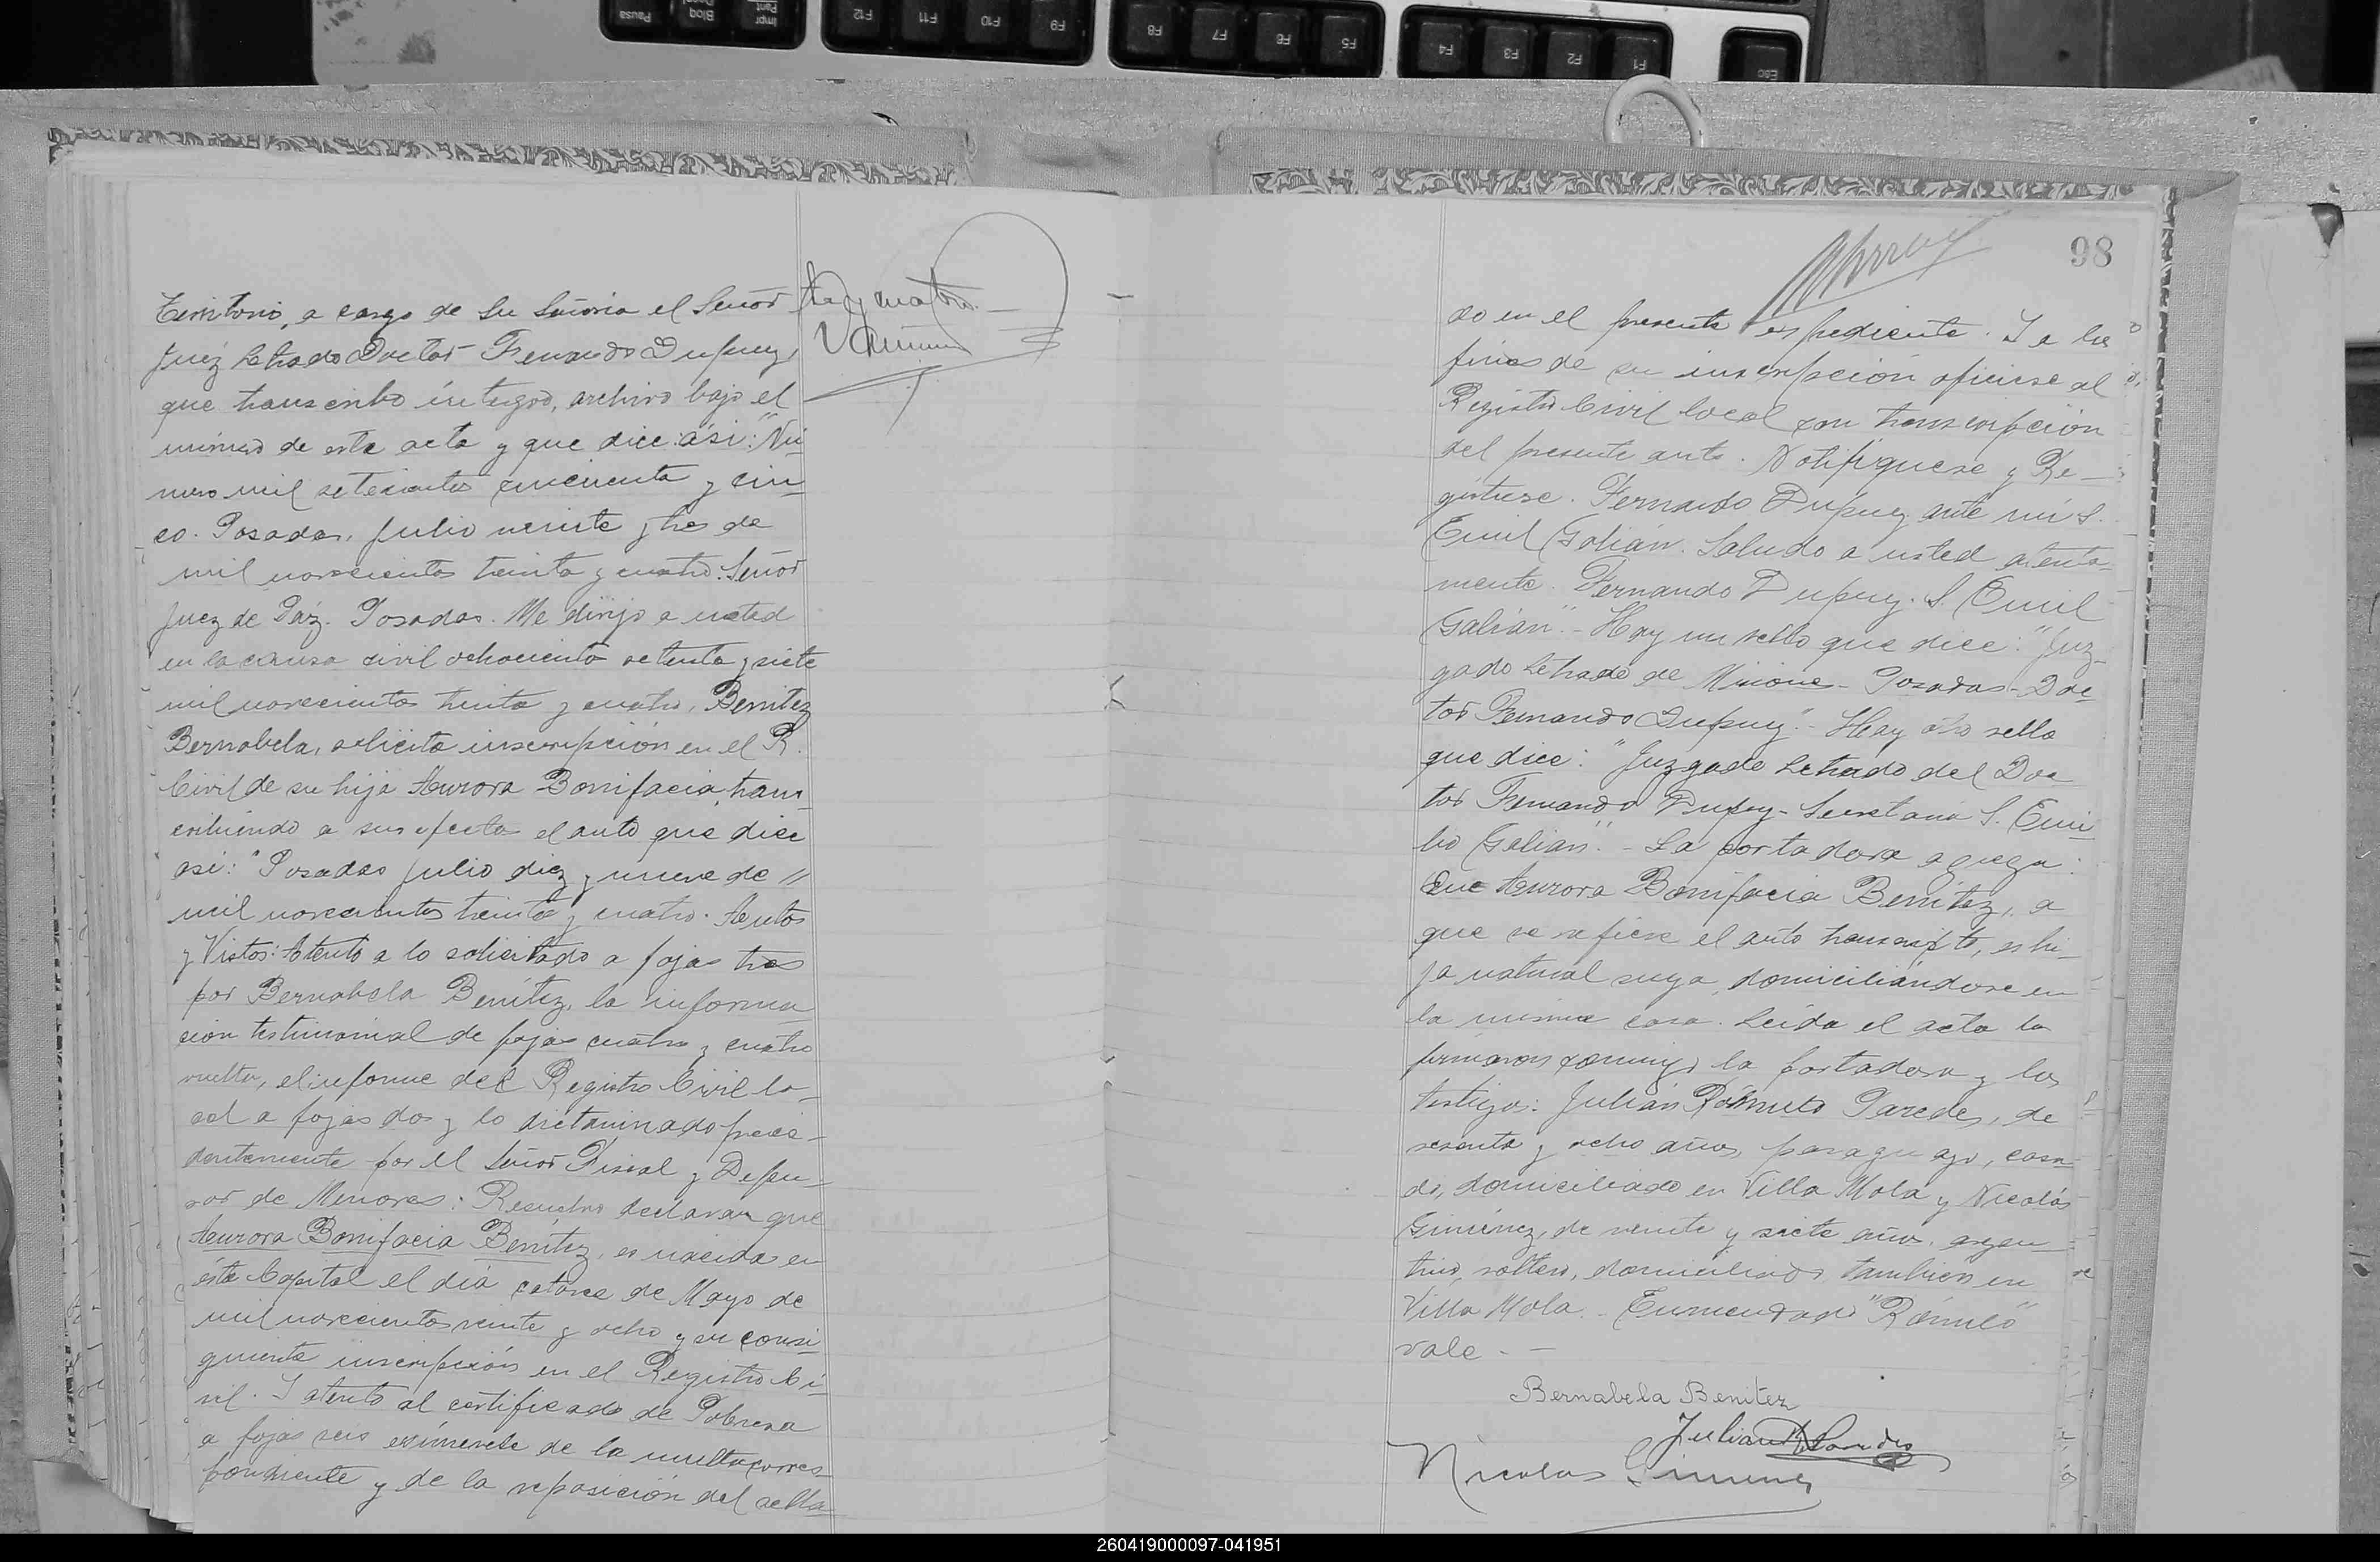 Territorio, a cargo de Su Señoria el Señor
Juez Letrado Doctor Fernando Dupuy,
que transcribo íntegro, archivo bajo el
número de esta acta y que dice: así: "Nú-
mero mil setecientos cincuenta y cin-
co. Posadas, Julio veinte y tres de
mil novecientos treinta y cuatro. Señor
Juez de Páz. Posadas. Me dirijo a usted
en la causa civil ochocientos setenta y siete
mil novecientos treinta y cuatro, Benitez
Bernabela, solicita inscripción en el R.
Civil de su hija Aurora Bonifacia, trans-
cribiendo a sus efectos el auto que dice
asi: "Posadas Julio diez y nueve de //
mil novecientos treinta y cuatro. Autos
y Vistos: Atento a lo solicitado a fojas tres
por Bernabela Benítez, la informa-
ción testimonial de fojas cuatro y cuatro
vuelta, el informe del Registro Civil lo-
cal a fojas dos y lo dictaminado prece-
dentemente por el Señor Fiscal y Defen-
sor de Menores: Resuelvo declarar que
Aurora Bonifacia Benítez, es nacida en
ésta Capital el día catorce de Mayo de
mil novecientos veinte y ocho y su consi-
guiente inscripción en el Registro Ci-
vil. I atento al certificado de Pobreza
a fojas seis exímesele de la multa corres-
pondiente y de la reposición del sella-
ta y cuatro.
98
do en el presente expediente. I a los
fines de su inscripción ofíciese al
Registro Civil local con transcripción
del presente auto. Notifíquese y Re-
gístrese. Fernando Dupuy ante mí S.
Emil Galián. Saludo a usted atenta-
mente. Fernando Dupuy. S. Emil
Galián." - Hay un sello que dice: "Juz-
gado Letrado de Misiones - Posadas - Doc-
tor Fernando Dupuy." - Hay otro sello
que dice: "Juzgado Letrado del Doc-
tor Fernando Dupuy - Secretaria S. Emi-
lio Galián." - La portadora agrega:
Que Aurora Bonifacia Benítez, a
que se refiere el auto transcripto, es hi-
ja natural suya, domiciliándose en
la misma casa. Leída el acta la
firmaron conmigo la portadora y los
testigos: Julián Rómulo Paredes, de
sesenta y ocho años, paraguayo, casa-
do, domiciliado en Villa Mola y Nicolás
Giménez, de veinte y siete años, argen-
tino, soltero, domiciliado tambien en
Villa Mola. - Enmendado "Rómulo"
vale. -
Bernabela Benitez
Julian R Paredes
Nicolas Gimenez
260419000097-041951